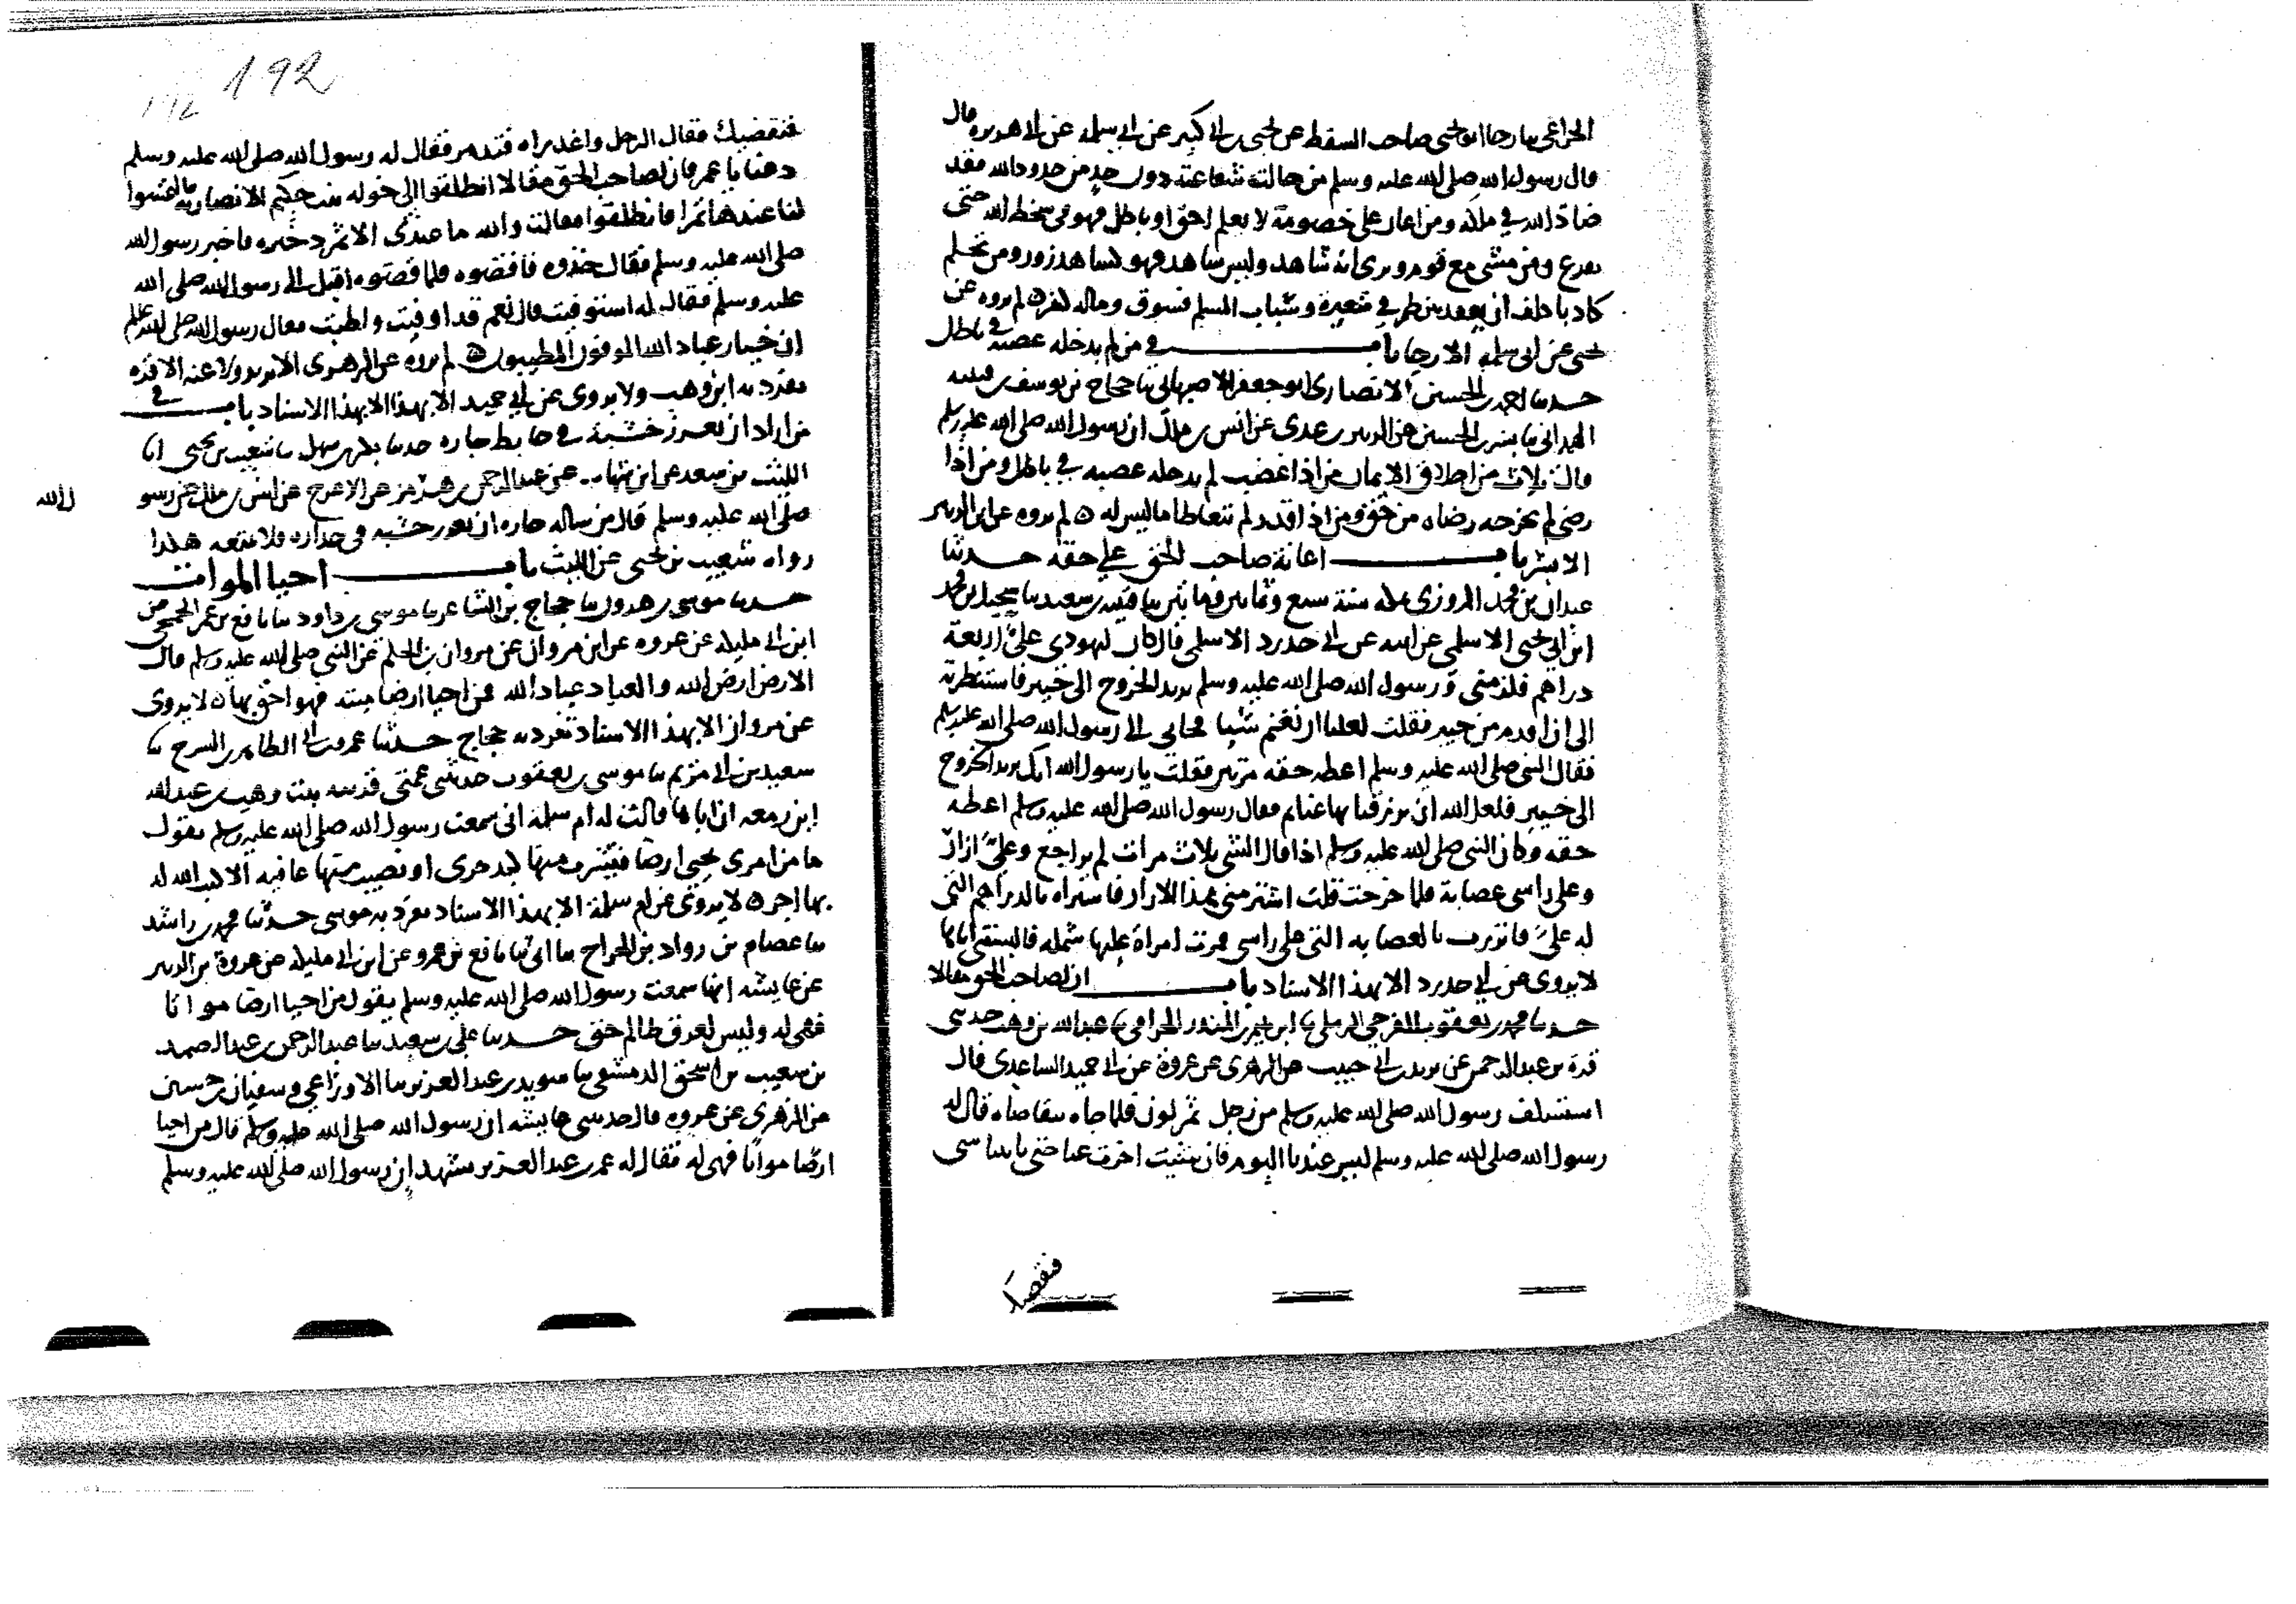 الخزاعي ثنا رجا ابو يحيى صاحب السقط عن يحيى بن ابي كثير عن ابي سلمة عن ابي هريرة قال
قال رسول الله صلى الله عليه وسلم من حالت شفاعته دون حد من حدود الله فقد
ضاد الله في ملكه ومن اعان على خصومة لا يعلم احق او باطل فهو في سخط الله حتى
ينزع ومن مشى مع قوم يرى انه شاهد وليس بشاهد فهو كشاهد زور ومن تحلم
كاذبا كلف ان يعقد بين طرفي شعيرة وسباب المسلم فسوق وقتاله كفر لم يروه عن
يحيى عن ابي سلمة الا رجا باب في من لم يدخله غضبه في باطل
حدثنا احمد بن الحسين الانصاري ابو جعفر الاصبهاني ثنا حجاج بن يوسف بن قتيبة
الهمداني ثنا بشر بن الحسين عن الزبير بن عدي عن انس بن ملك ان رسول الله صلى الله عليه وسلم
قال ثلاث من اخلاق الايمان من اذا غضب لم يدخله غضبه في باطل ومن اذا
رضي لم يخرجه رضاه من حق ومن اذا قدر لم يتعاطا ما ليس له لم يروه عن الزبير
الا بشر باب اعانة صاحب الحق على حقه حدثنا
عبدان بن محمد المروزي بمكة سنة سبع وثمانين ومايتين ثنا قتيبة بن سعيد ثنا بن محمد
ابن ابي يحيى الاسلمي عن ابيه عن ابي حدرد الاسلمي قال كان ليهودي علي اربعة
دراهم فلزمني ورسول الله صلى الله عليه وسلم يريد الخروج الى خيبر فاستنظرته
الى ان اقدم من خيبر فقلت لعلنا ان نغنم شيا فجابي الى رسول الله صلى الله عليه وسلم
فقال النبي صلى الله عليه وسلم اعطه حقه مرتين فقلت يا رسول الله انك تريد الخروج
الى خيبر فلعل الله ان يرزقنا بها غنايم فقال رسول الله صلى الله عليه وسلم اعطه
حقه وكان النبي صلى الله عليه وسلم اذا قال الشي ثلاث مرات لم يراجع وعلي ازار
وعلى راسي عصابة فلما خرجت قلت اشتر مني هذا الازار فاشتراه بالدراهم التي
له علي فاتزرت بالعصابة التي على راسي فمرت امراة عليها شملة فالبستني اياها
لا يروى عن ابي حدرد الا بهذا الاسناد باب ان لصاحب الحق مقالا
حدثنا محمد بن يعقوب الفرجي الرملي ثنا ابرهيم بن المنذر الحزامي ثنا عبد الله بن وهب حدثني
قرة بن عبد الرحمن عن يزيد بن ابي حبيب عن الزهري عن عروة عن ابي حميد الساعدي قال
استسلف رسول الله صلى الله عليه وسلم من رجل تمر لون فلما جاه يتقاضاه قال له
رسول الله صلى الله عليه وسلم ليس عندنا اليوم فان شيت اخرت عنا حتى ياتينا شي
فنقضيك
192
192
فنقضيك فقال الرجل واغدراه فتذمر فقال له رسول الله صلى الله عليه وسلم
دعنا يا عمر فان لصاحب الحق مقالا انطلقوا الى خولة بنت حكيم الانصارية فالتمسوا
لنا عندها تمرا فانطلقوا فقالت والله ما عندي الا تمر ذخيره فاخبر رسول الله
صلى الله عليه وسلم فقال خذوه فاقضوه فلما قضوه اقبل الى رسول الله صلى الله
عليه وسلم فقال له استوفيت قال نعم قد اوفيت واطيبت فقال رسول الله صلى الله عليه وسلم
ان خيار عباد الله الموفون المطيبون لم يروه عن الزهري الا يزيد ولا عنه الا قره
تفرد به ابن وهب ولا يروى عن ابي حميد الا بهذا الاسناد باب في
من اراد ان يغرز خشبة في حايط جاره حدثنا بكر بن سهل ثنا شعيب بن يحيى انا
الليث بن سعد عن ابن شهاب عن عبد الرحمن بن هرمز عن الاعرج عن انس بن ملك عن رسو
ل الله
صلى الله عليه وسلم قال من ساله جاره ان يغرز خشبه في جداره فلا يمنعه هكذا
رواه شعيب بن يحيى عن الليث باب احيا الموات
حدثنا موسى بن هرون ثنا حجاج بن الشاعر ثنا موسى بن داود ثنا نافع بن عمر الجمحي عن
ابن ابي مليكة عن عروه عن ابن مروان عن مروان بن الحكم عن النبي صلى الله عليه وسلم قال
الارض ارض الله والعباد عباد الله من احيا ارضا ميته فهو احق بها لا يروى
عن مروان الا بهذا الاسناد تفرد به حجاج حدثنا عمرو بن ابي الطاهر بن السرح ثنا
سعيد بن ابي مريم ثنا موسى بن يعقوب حدثني عمتي قريبه بنت وهب بن عبد الله
ابن زمعه ان اباها قالت له ام سلمة اني سمعت رسول الله صلى الله عليه وسلم يقول
ما من امري يحيي ارضا فيشرب منها كبد حرى او تصيب منها عافية الا كتب الله له
بها اجر لا يروى عن ام سلمة الا بهذا الاسناد تفرد به موسى حدثنا محمد بن راشد
ثنا عصام بن رواد بن الجراح ثنا ابي ثنا نافع بن عمر عن ابن ابي مليكة عن عروة بن الزبير
عن عايشه انها سمعت رسول الله صلى الله عليه وسلم يقول من احيا ارضا مواتا
فهي له وليس لعرق ظالم حق حدثنا علي بن سعيد ثنا عبد الرحمن بن عبد الصمد
بن شعيب بن اسحق الدمشقي ثنا سويد بن عبد العزيز ثنا الاوزاعي وسفيان بن حسين
عن الزهري عن عروه قال حدثتني عايشه ان رسول الله صلى الله عليه وسلم قال من احيا
ارضا مواتا فهي له فقال له عمر بن عبد العزيز تشهد ان رسول الله صلى الله عليه وسلم